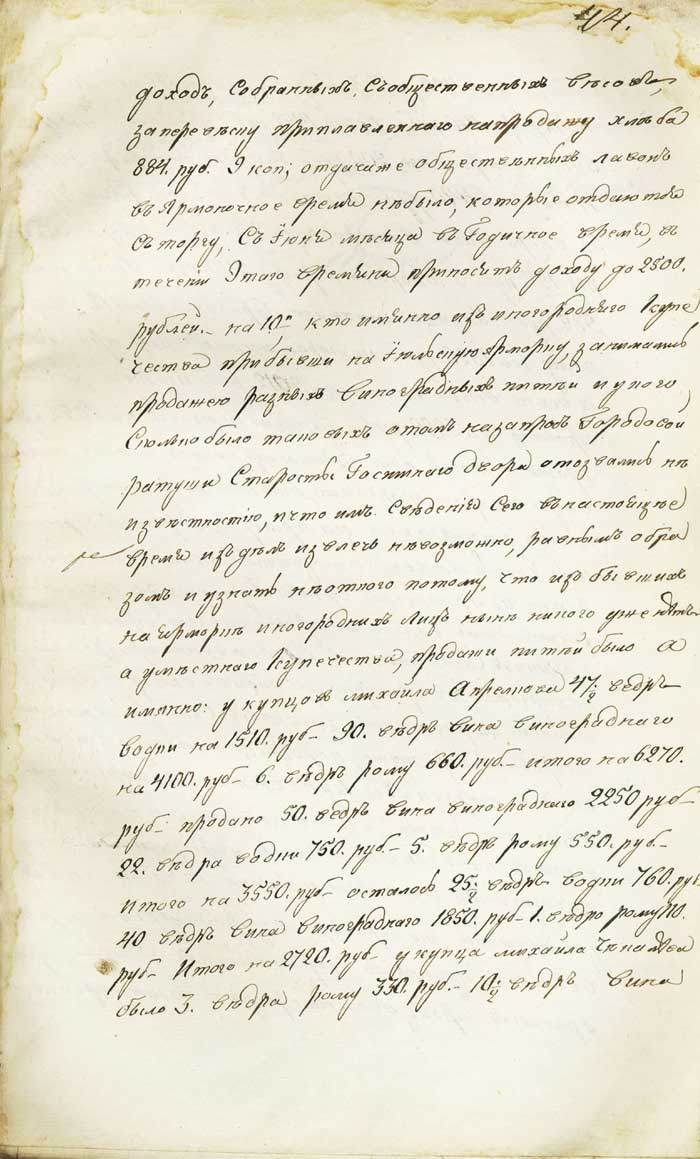 44.
доходъ, собранныхъ, съобщественныхъ вѣсовъ,
заперевѣску приплавленнаго напродажу хлѣба
884. руб. 9 коп; отдачаже общественныхъ лавокъ
въ Ярмоночное время небыло, которые отдаются
съ торгу, съ Іюня мѣсяца въ Годичное время, въ
теченіи Этаго времяни приноситъ доходу до 2500.
рублей. – на 10й кто имянно изъ иногороднаго Купе
чества прибывши на Іюльскую ярморку, занимались
продажею разныхъ виноградныхъ питей и укого
Сколько было таковыхъ отомъ назапросъ Городовой
ратуши Старосты Гостиннаго двора отозвались не
извѣстностію, и что имъ. Свѣденія Сего внастоящее
время изъ дѣлъ извлечь невозможно, равнымъ обра
зомъ и узнать неоткого потому, что изъ бывшихъ
на ярморкѣ иногородныхъ Лицъ нынѣ никого уже нѣтъ
а умѣстнаго Купечества, продажи питей было а
имянно: у купцовъ михайла Апрелкова 47½ ведръ
водки на 1510. руб – 90. вѣдръ вина винограднаго
на 4100. руб – 6. вѣдръ рому 660. руб – итого на 6270.
руб – продано 50. ведръ вина винограднаго 2250 руб –
22. вѣдра водки 750. руб – 5. вѣдръ рому 550. руб –
итого на 3550. руб – осталось 25½ вѣдръ водки 760. руб
40 вѣдръ вина винограднаго 1850. руб – 1. вѣдро рому 110.
руб – Итого на 2720. руб – у купца михайла
было 3. вѣдра рому 330. руб. – 10½ вѣдръ вина